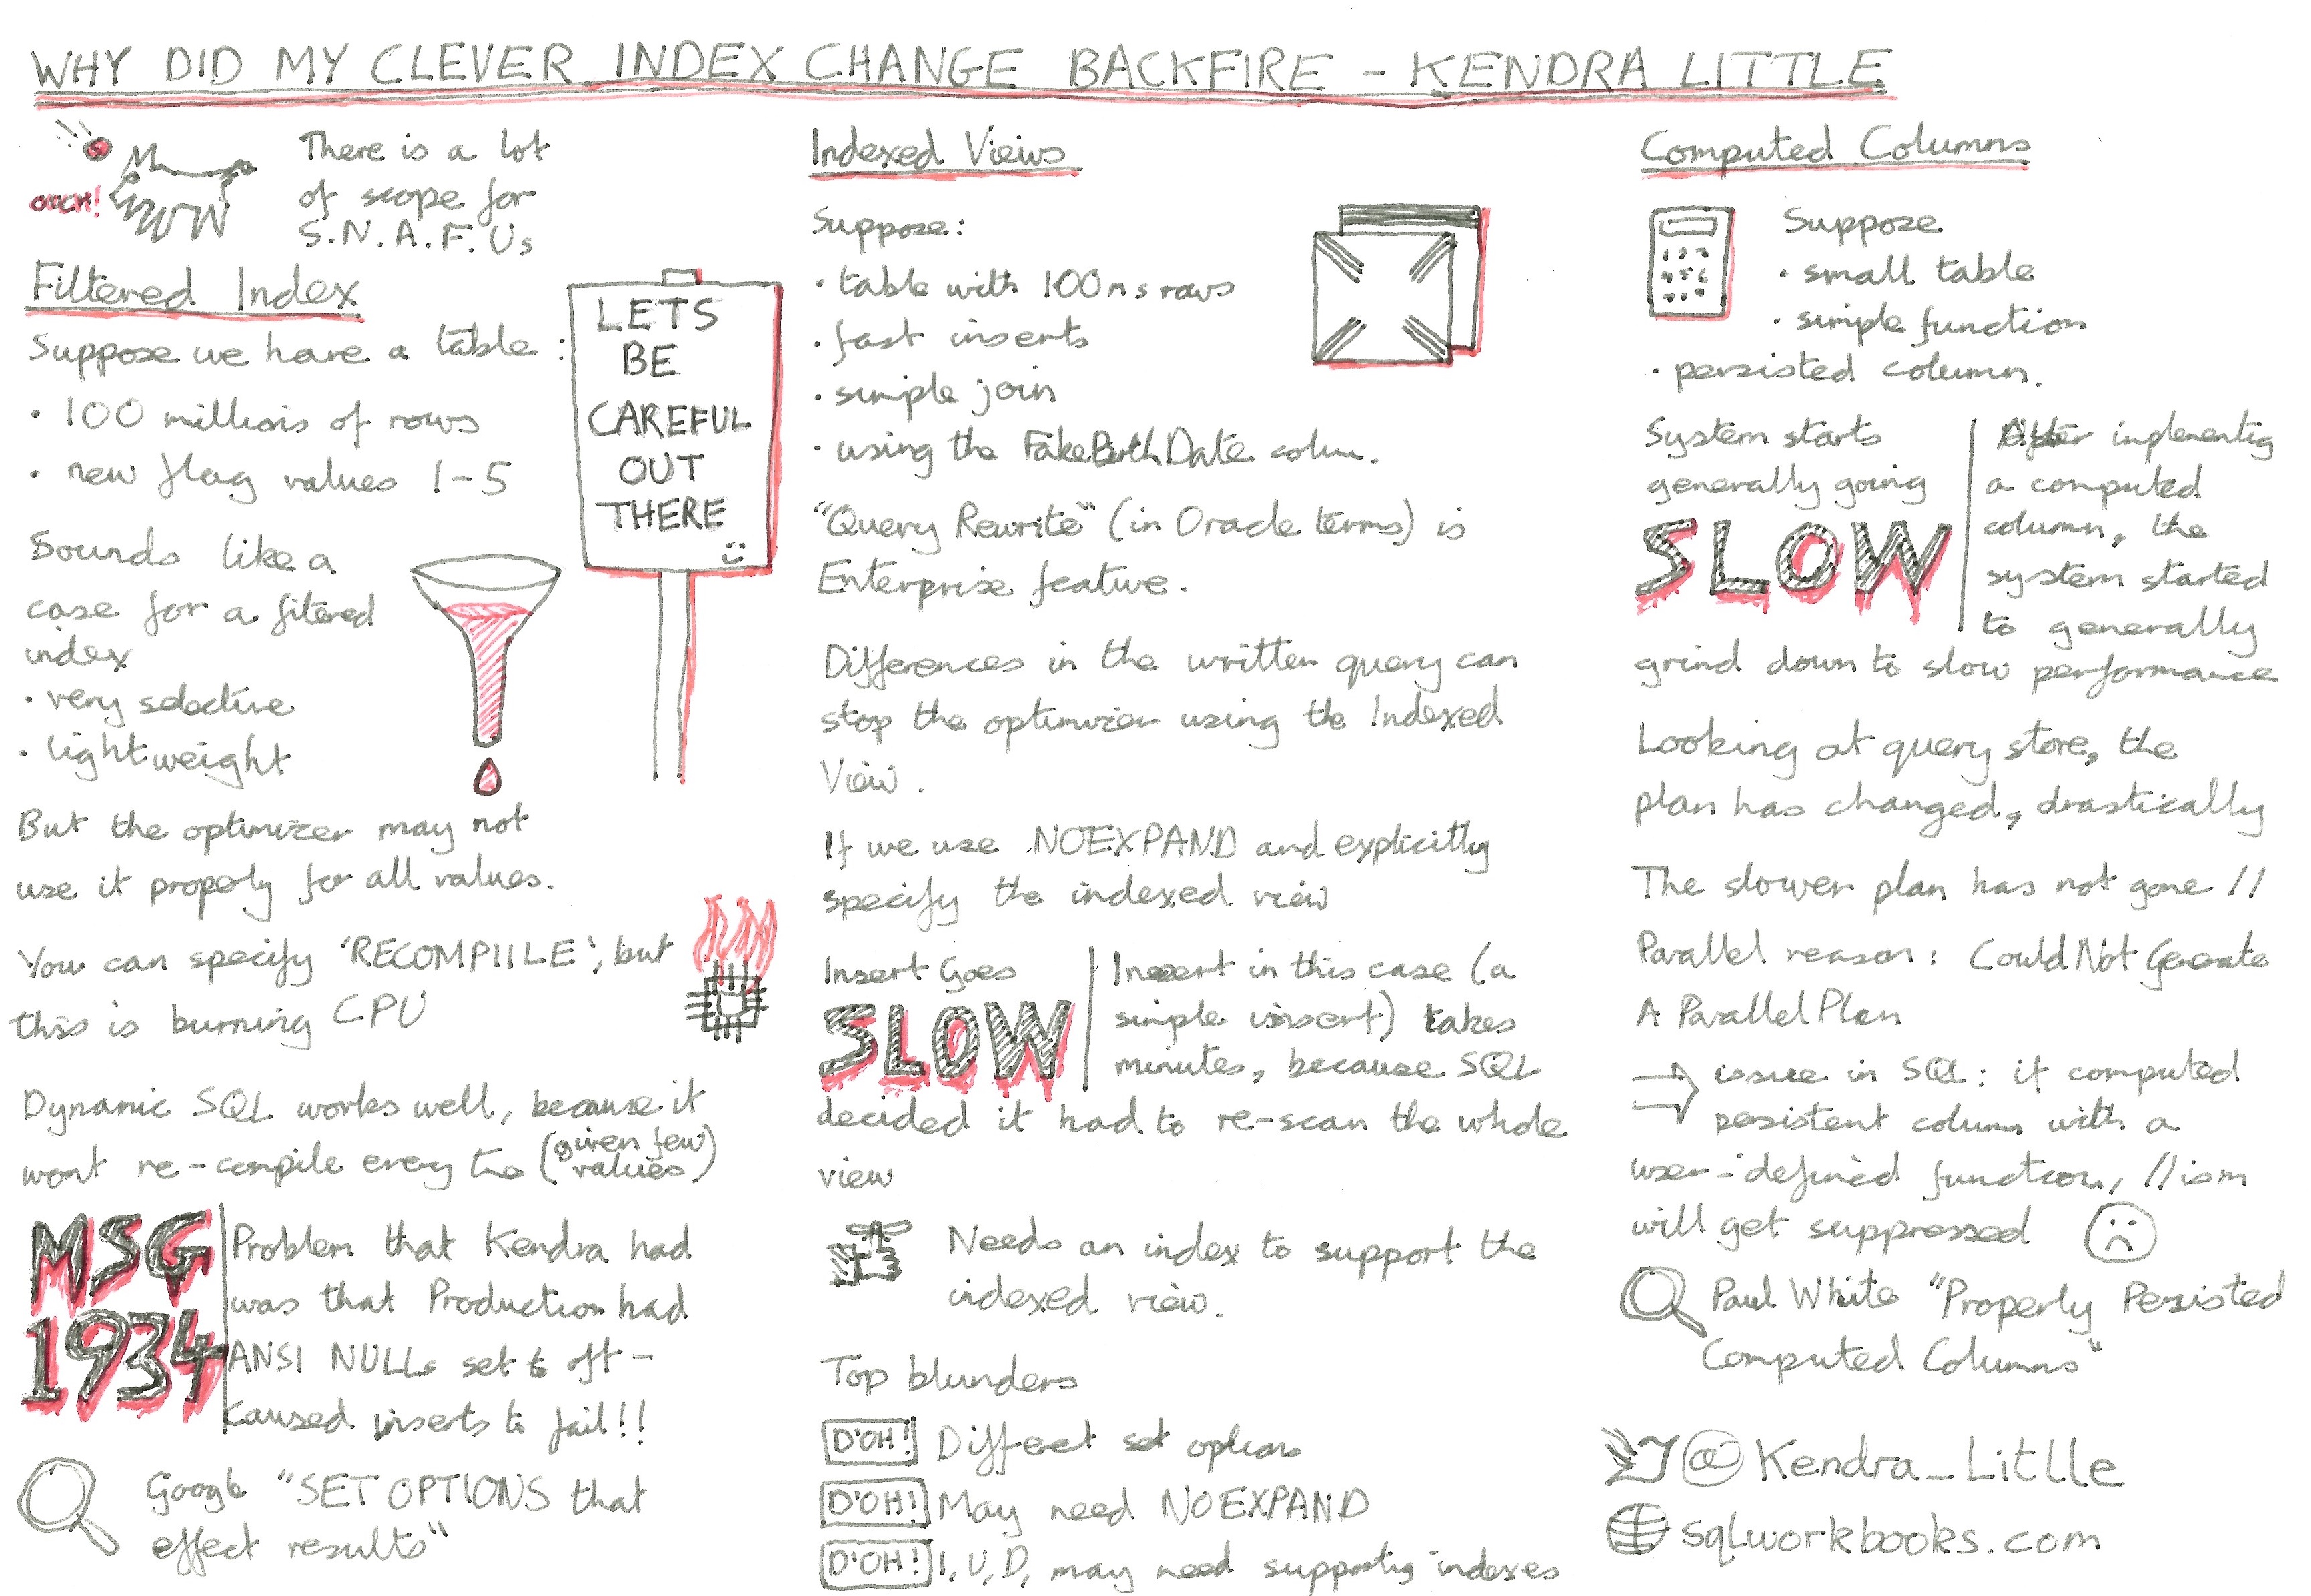 WHY DID MY CLEVER INDEX CHANGE BACKFIRE - KENDRA LITTLE
OUCH!
There is a lot
of scope for
S.N.A.F.Us
Filtered Index
Suppose we have a table:
· 100 millions of rows
· new flag values 1-5
Sounds like a
case for a filtered
index
· very selective
· lightweight
LETS
BE
CAREFUL
OUT
THERE
But the optimizer may not
use it properly for all values.
You can specify 'RECOMPIILE', but
this is burning CPU
Dynamic SQL works well, because it
wont re-compile every time (given few
values)
MSG
1934
Problem that Kendra had
was that Production had
ANSI NULLs set to off -
caused inserts to fail!!
Google "SET OPTIONS that
effect results"
Indexed Views
Suppose:
· table with 100ms rows
· fast inserts
· simple join
· using the FakeBirthDate column.
"Query Rewrite" (in Oracle terms) is
Enterprise feature.
Differences in the written query can
stop the optimizer using the Indexed
View.
If we use NOEXPAND and explicitly
specify the indexed view
Insert Goes
SLOW
Insert in this case (a
simple insert) takes
minutes, because SQL
decided it had to re-scan the whole
view
Needs an index to support the
indexed view.
Top blunders
D'OH! Different set options
D'OH! May need NOEXPAND
D'OH! I, U, D, may need supporting indexes
Computed Columns
Suppose
· small table
· simple function
· persisted column.
System starts
generally going
SLOW
After implementig
a computed
column, the
system started
to generally
grind down to slow performance
Looking at query store, the
plan has changed, drastically
The slower plan has not gone //
Parallel reason: CouldNotGenerate
A ParallelPlan
⇒ issue in SQL: if computed
persistent column with a
user-defined function, //ism
will get suppressed
Paul White "Properly Persisted
Computed Columns"
@Kendra_Litlle
sqlworkbooks.com